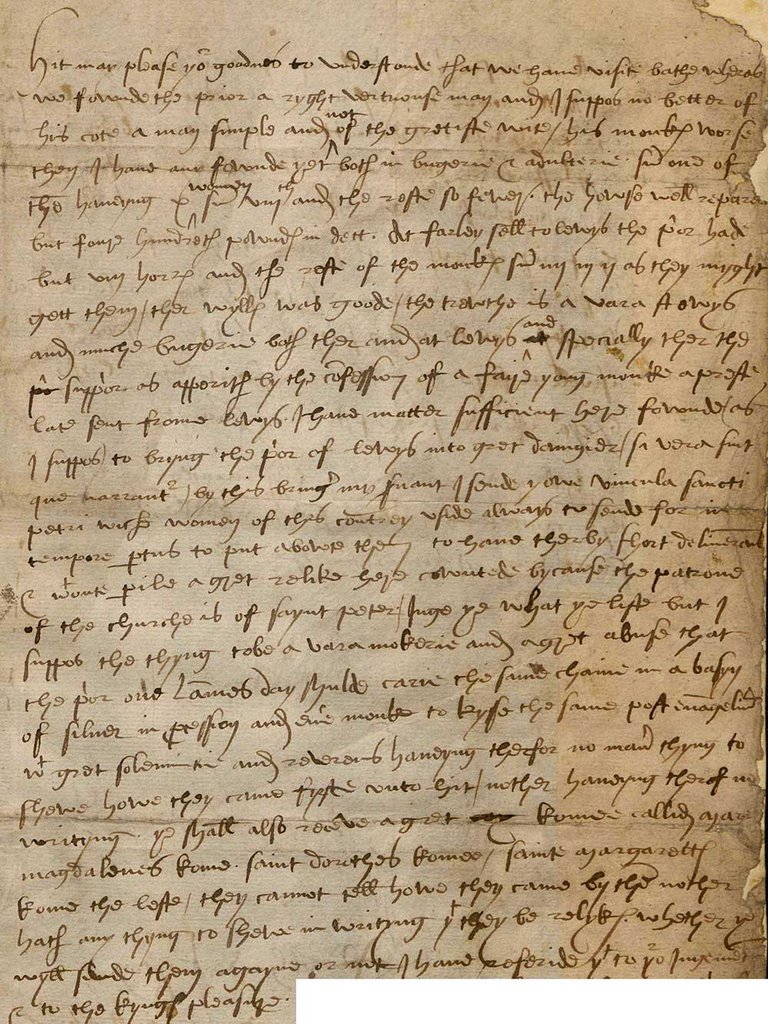 Hit may please yor goodnes to understonde that we have visite bathe wheras
we fownde the prior a ryght vertuouse man and I suppos no better of
his cote a man simple and not of the gretiste wite / his monkes worse
then I have any fownde yet both in bugerie & adulterie sum one of
them haveyng x women sum viijth and the reste so fewer. the howse well repared
but foure hundreth powndes in dett. At farley sell to lewys the prior hade
but viij hores and the reste of the monkes sum iiij iij ij as they myght
gett them / ther wylles was goode / the trewthe is a vara stewys
and muche bugerie both ther and at lewys and specially ther the
suppor as apperith by the confession off a faire young monke a preste
late sent frome lewys. I have matter sufficient here fownde / as
I suppos / to bryng the prior of lewys into gret daungier / si vera sint
que narrantur / by this bringer my servant I sende yowe vincula sancti
petri wiche women of this contrey uside always to sende for in
tempore partus to put abowte them to have therby short deliverance
& wtoute perile a gret relike here cowntede bycause the patrone
of the churche is of saynt peter / Juge ye what ye liste but I
suppos the thyng to be a vara mokerie and a gret abuse that
the prior one lammes day shulde carie the same chaine in a basyn
of silver in procession and everie monke to kysse the same post evangelium
wt gret solemnitie and reverens haveyng therfor no maner thyng to
shewe howe they came fyrste unto hit / nether haveyng therof in
writyng. ye shall also receve a gret komee callid mare
magdalenes kome. saint dorothes komee / sainte margarettes
kome the leste / they cannot tell howe they came by them nother
hath any thyng to shewe in writyng yt they be relykes. whether ye
wyll sende them agayne or not I have referide yt to yor Jugement
& to the kynges pleasure.